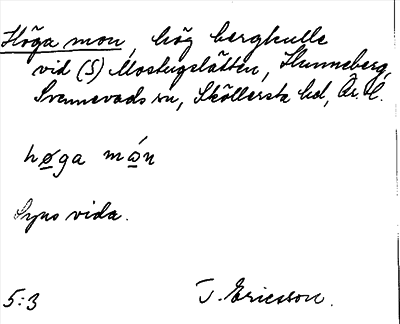 Höga mon, hög bergkulle
vid (S) Mostugslätten, Hunneberg,
Svennevads sn, Sköllersta hd, Ör. l.
høga mɷ́n
Syns vida.
5:3 T. Ericsson.